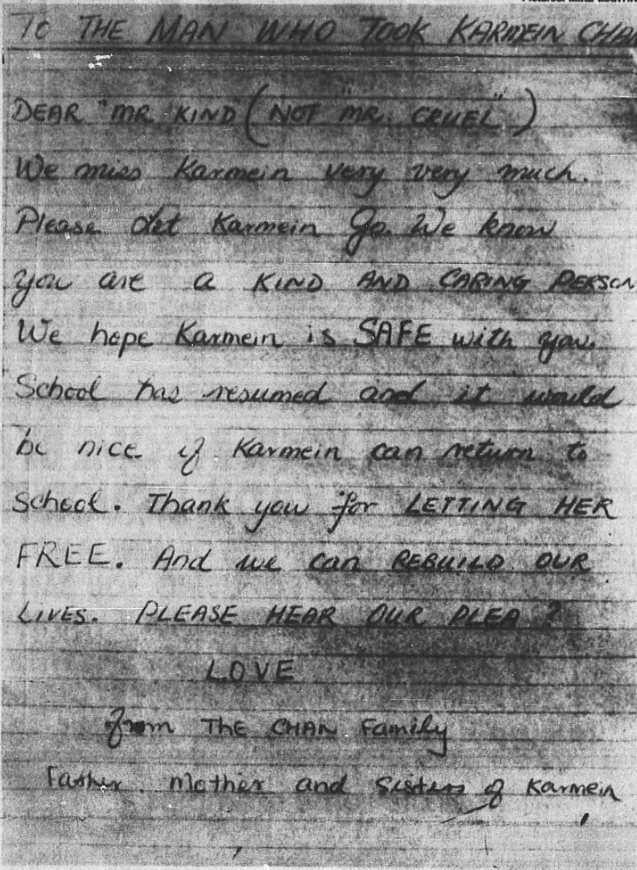 TO THE MAN WHO TOOK KARMEIN CHAN
DEAR "MR. KIND" (NOT "MR. CRUEL")
We miss Karmein very very much.
Please Let Karmein Go. We know
you are a KIND AND CARING PERSON
We hope Karmein is SAFE with you.
School has resumed and it would
be nice if Karmein can return to
school. Thank you for LETTING HER
FREE. And we can REBUILD OUR
LIVES. PLEASE HEAR OUR PLEA ?
LOVE
from THE CHAN Family
Father. Mother and Sisters of Karmein